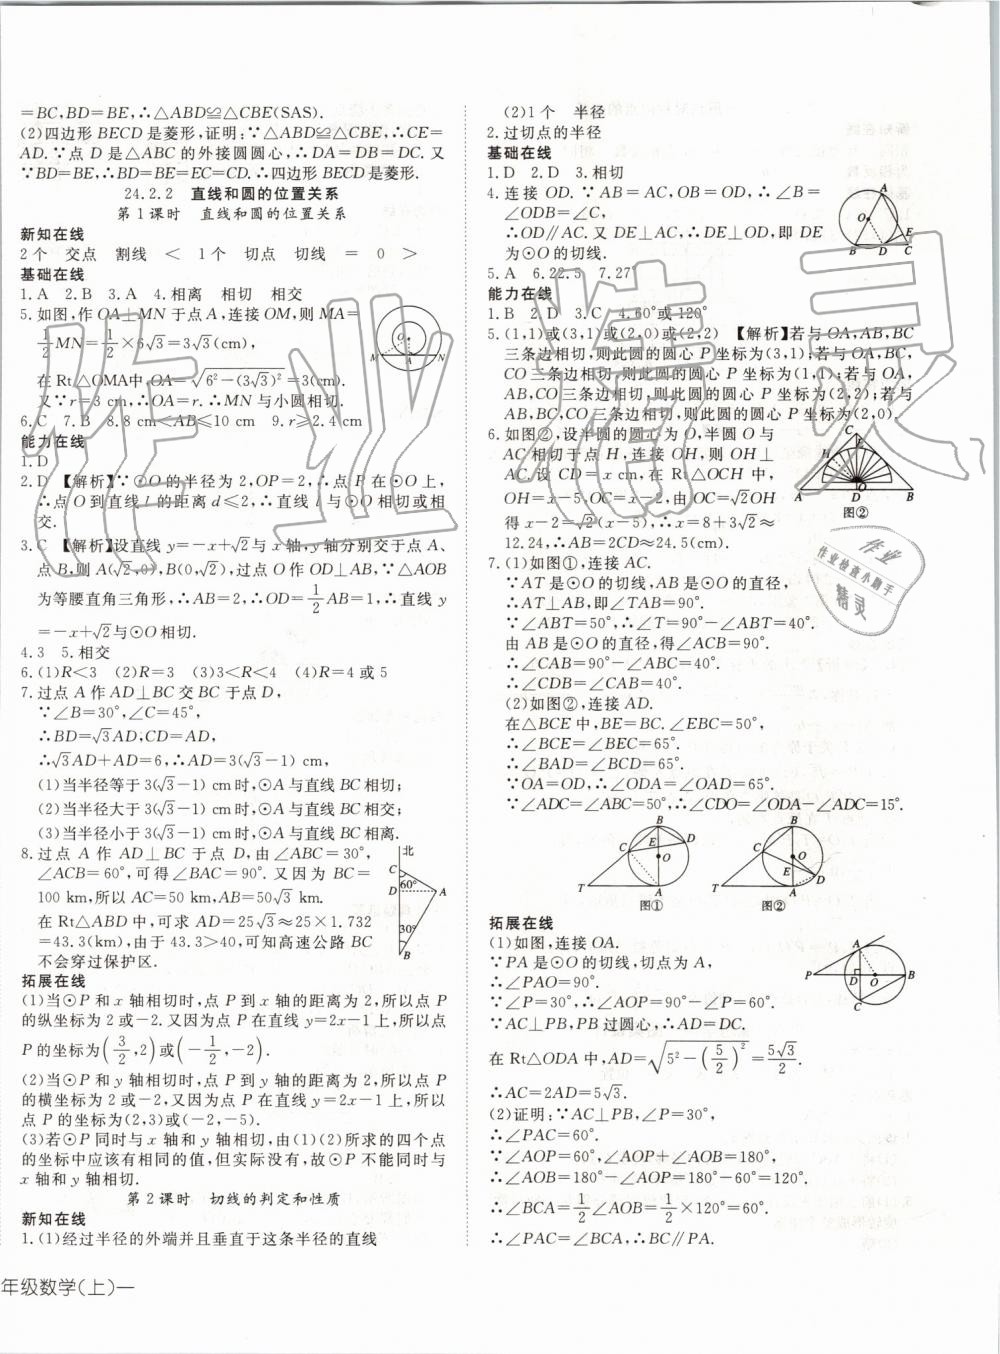 =BC,BD=BE,∴△ABD≌△CBE(SAS).
(2)四边形 BECD 是菱形,证明:∵△ABD≌△CBE,∴CE=
AD.∵点 D 是△ABC 的外接圆圆心,∴DA=DB=DC.又
∵BD=BE,∴BD=BE=EC=CD,∴四边形 BECD 是菱形.
24.2.2 直线和圆的位置关系
第1课时 直线和圆的位置关系
新知在线
2个 交点 割线 < 1个 切点 切线 = 0 >
基础在线
1.A 2.B 3.A 4.相离 相切 相交
5.如图,作 OA⊥MN 于点 A,连接 OM,则 MA=
1/2 MN=1/2×6√3=3√3(cm).
在 Rt△OMA中,OA=√(6²−(3√3)²)=3(cm).
又∵r=3 cm,∴OA=r.∴MN与小圆相切.
6.C 7.B 8.8 cm<AB≤10 cm 9.r≥2.4 cm
能力在线
1.D
2.D 【解析】∵⊙O 的半径为 2,OP=2,∴点 P 在⊙O 上,
∴点 O 到直线 l 的距离 d≤2,∴直线 l 与⊙O 相切或相
交.
3.C 【解析】设直线 y=−x+√2与 x 轴,y轴分别交于点 A、
点 B,则 A(√2,0),B(0,√2),过点 O 作 OD⊥AB,∵△AOB
为等腰直角三角形,∴AB=2,∴OD=1/2 AB=1,∴直线 y
=−x+√2与⊙O 相切.
4.3 5.相交
6.(1)R<3 (2)R=3 (3)3<R<4 (4)R=4 或 5
7.过点 A 作 AD⊥BC 交 BC 于点 D,
∵∠B=30°,∠C=45°,
∴BD=√3AD,CD=AD,
∴√3AD+AD=6,∴AD=3(√3−1) cm,
(1)当半径等于 3(√3−1) cm时,⊙A 与直线 BC 相切;
(2)当半径大于 3(√3−1) cm时,⊙A 与直线 BC 相交;
(3)当半径小于 3(√3−1) cm时,⊙A 与直线 BC 相离.
8.过点 A 作 AD⊥BC 于点 D,由∠ABC=30°,
∠ACB=60°,可得∠BAC=90°.又因为 BC=
100 km,所以 AC=50 km,AB=50√3 km.
在 Rt△ABD 中,可求 AD=25√3≈25×1.732
=43.3(km),由于 43.3>40,可知高速公路 BC
不会穿过保护区.
北
C
60°
D
A
30°
B
拓展在线
(1)当⊙P 和 x 轴相切时,点 P 到 x 轴的距离为 2,所以点 P
的纵坐标为 2 或−2.又因为点 P 在直线 y=2x−1 上,所以点
P 的坐标为(3/2,2)或(−1/2,−2).
(2)当⊙P 和 y 轴相切时,点 P 到 y 轴的距离为 2,所以点 P
的横坐标为 2 或−2,又因为点 P 在直线 y=2x−1 上,所以
点 P 的坐标为(2,3)或(−2,−5).
(3)若⊙P 同时与 x 轴和 y 轴相切,由(1)(2)所求的四个点
的坐标中应该有相同的值,但实际没有,故⊙P 不能同时与
x 轴和 y 轴相切.
第2课时 切线的判定和性质
新知在线
1.(1)经过半径的外端并且垂直于这条半径的直线
年级数学(上)—
(2)1个 半径
2.过切点的半径
基础在线
1.D 2.D 3.相切
4.连接 OD.∵AB=AC,OB=OD,∴∠B=
∠ODB=∠C,
∴OD∥AC.又 DE⊥AC,∴DE⊥OD,即 DE
为⊙O 的切线.
5.A 6.22.5 7.27°
能力在线
1.B 2.D 3.C 4.60°或 120°
5.(1,1)或(3,1)或(2,0)或(2,2) 【解析】若与 OA,AB,BC
三条边相切,则此圆的圆心 P 坐标为(3,1);若与 OA,BC,
CO 三条边相切,则此圆的圆心 P 坐标为(1,1);若与 OA,
AB,CO三条边相切,则此圆的圆心 P 坐标为(2,2);若与
AB,BC,CO三条边相切,则此圆的圆心 P 坐标为(2,0).
6.如图②,设半圆的圆心为 O,半圆 O 与
AC 相切于点 H,连接 OH,则 OH⊥
AC.设 CD=x cm,在 Rt△OCH 中,
OH=x−5,OC=x−2,由OC=√2OH
得 x−2=√2(x−5),∴x=8+3√2≈
12.24,∴AB=2CD≈24.5(cm).
图②
7.(1)如图①,连接 AC.
∵AT 是⊙O 的切线,AB 是⊙O 的直径,
∴AT⊥AB,即∠TAB=90°.
∵∠ABT=50°,∴∠T=90°−∠ABT=40°.
由 AB 是⊙O 的直径,得∠ACB=90°,
∴∠CAB=90°−∠ABC=40°.
∴∠CDB=∠CAB=40°.
(2)如图②,连接 AD.
在△BCE 中,BE=BC.∠EBC=50°,
∴∠BCE=∠BEC=65°.
∴∠BAD=∠BCD=65°.
∵OA=OD,∴∠ODA=∠OAD=65°.
∵∠ADC=∠ABC=50°,∴∠CDO=∠ODA−∠ADC=15°.
图① 图②
拓展在线
(1)如图,连接 OA.
∵PA 是⊙O 的切线,切点为 A,
∴∠PAO=90°.
∵∠P=30°,∴∠AOP=90°−∠P=60°.
∵AC⊥PB,PB 过圆心,∴AD=DC.
在 Rt△ODA 中,AD=√(5²−(5/2)²)=5√3/2.
∴AC=2AD=5√3.
(2)证明:∵AC⊥PB,∠P=30°,
∴∠PAC=60°.
∵∠AOP=60°,∠AOP+∠AOB=180°,
∴∠AOB=180°−∠AOP=180°−60°=120°,
∴∠BCA=1/2∠AOB=1/2×120°=60°.
∴∠PAC=∠BCA,∴BC∥PA.
作业精灵
作业
作业检查小助手
精灵